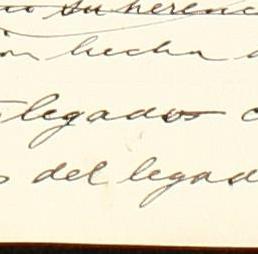 su herenc
ón hecha
legados
del legad